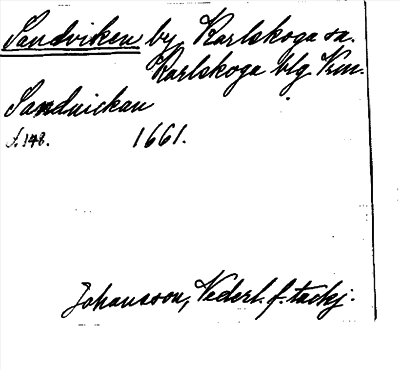 Sandviken by Karlskoga sn.
Karlskoga blg Krm.
Sanduickan
s. 148. 1661.
Johansson, Nederl. f. tackj.